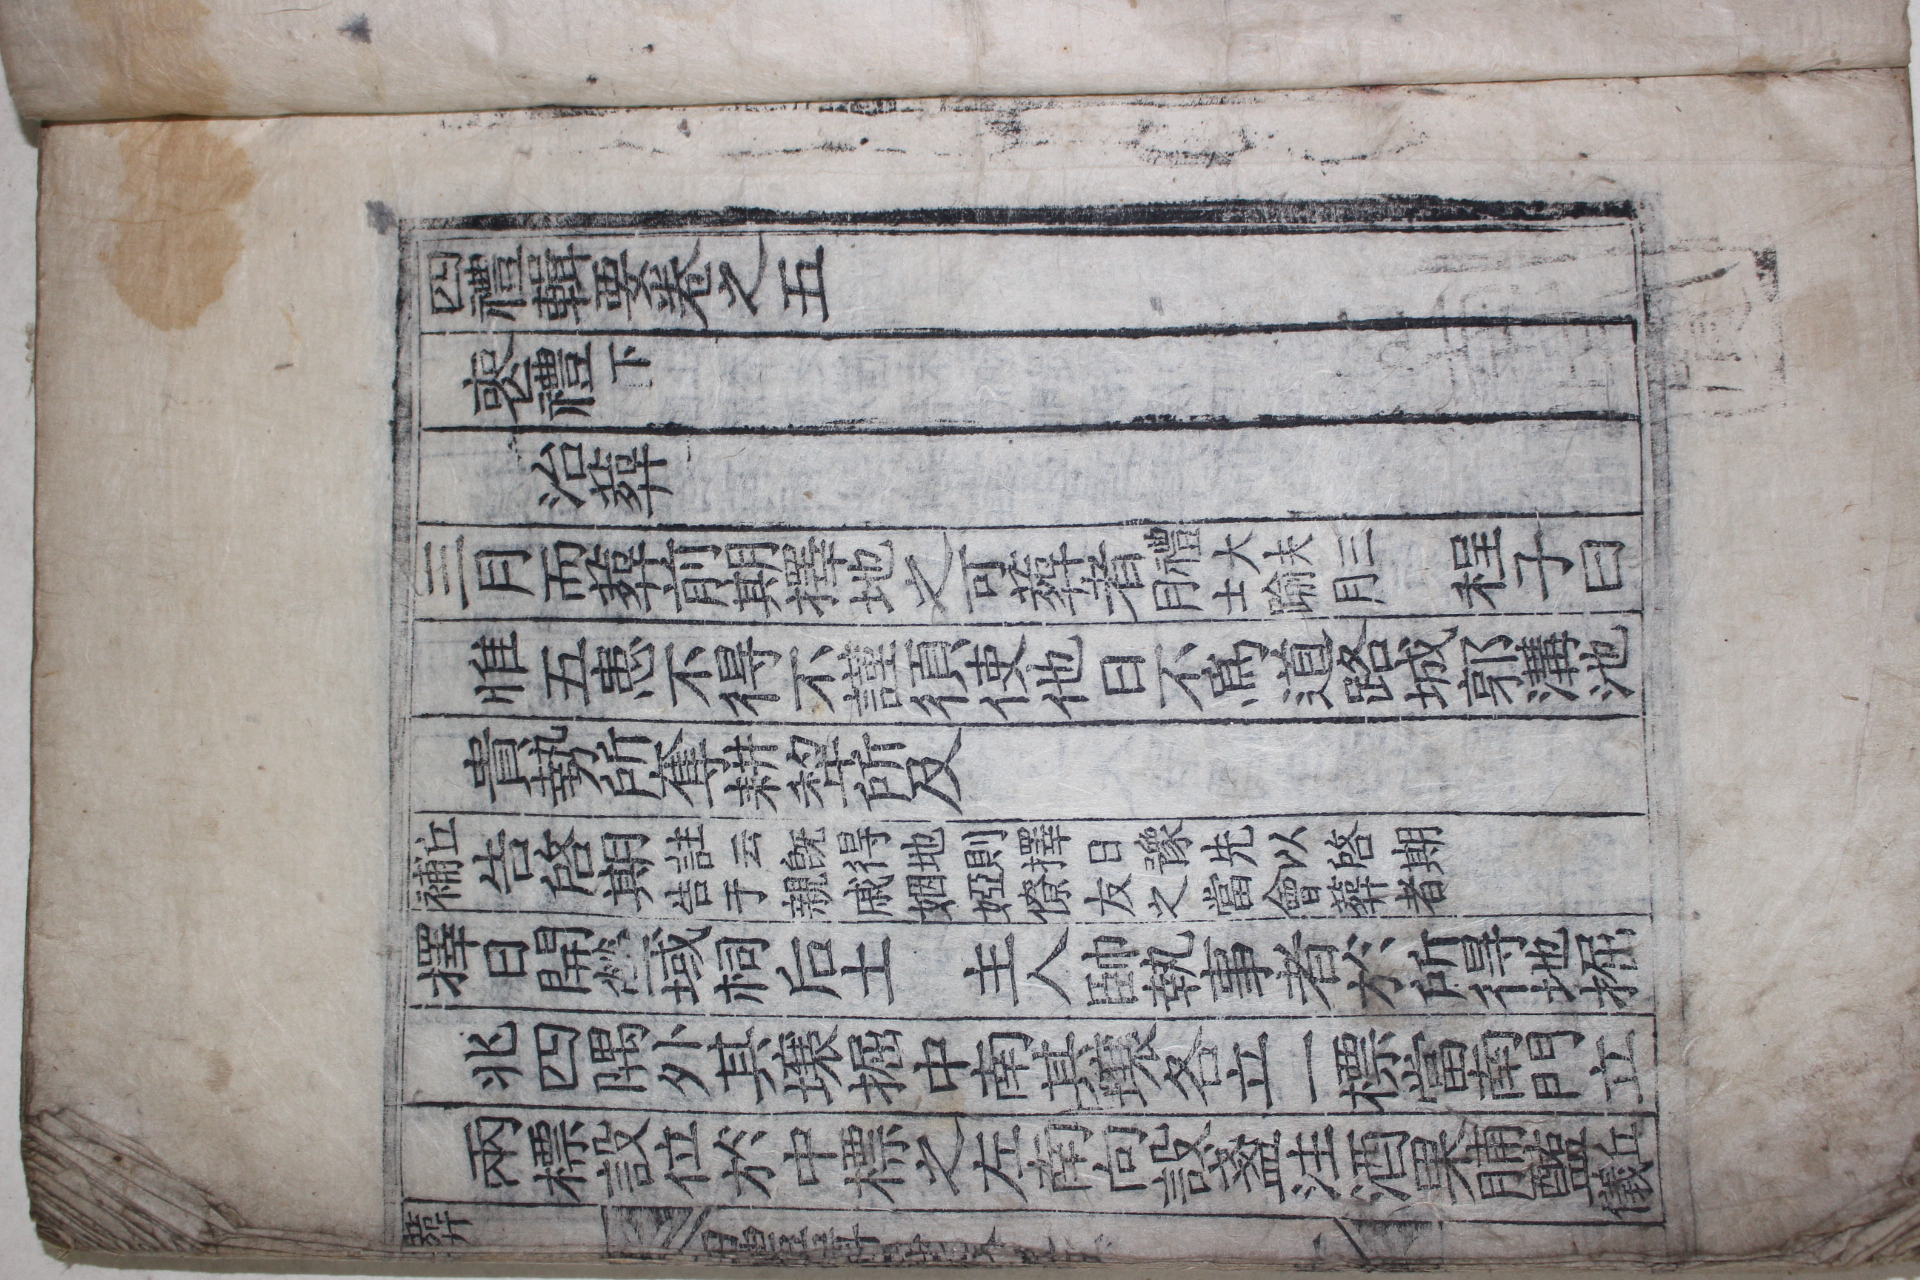 四禮輯要卷之五
喪禮下
治葬
三月而葬前期擇地之可葬者禮大夫三月士踰月 程子曰
惟五患不得不謹須使他日不爲道路城郭溝池
貴勢所奪耕犁所及
丘補告啓期註云既得地則擇日豫先以啓期告于親戚姻婭僚友之當會葬者
擇日開塋域祠后土 主人帥執事者於所得地掘
兆四隅外其壤掘中南其壤各立一標當南門立
兩標設位於中標之左南向設盞注酒果脯醢丘儀